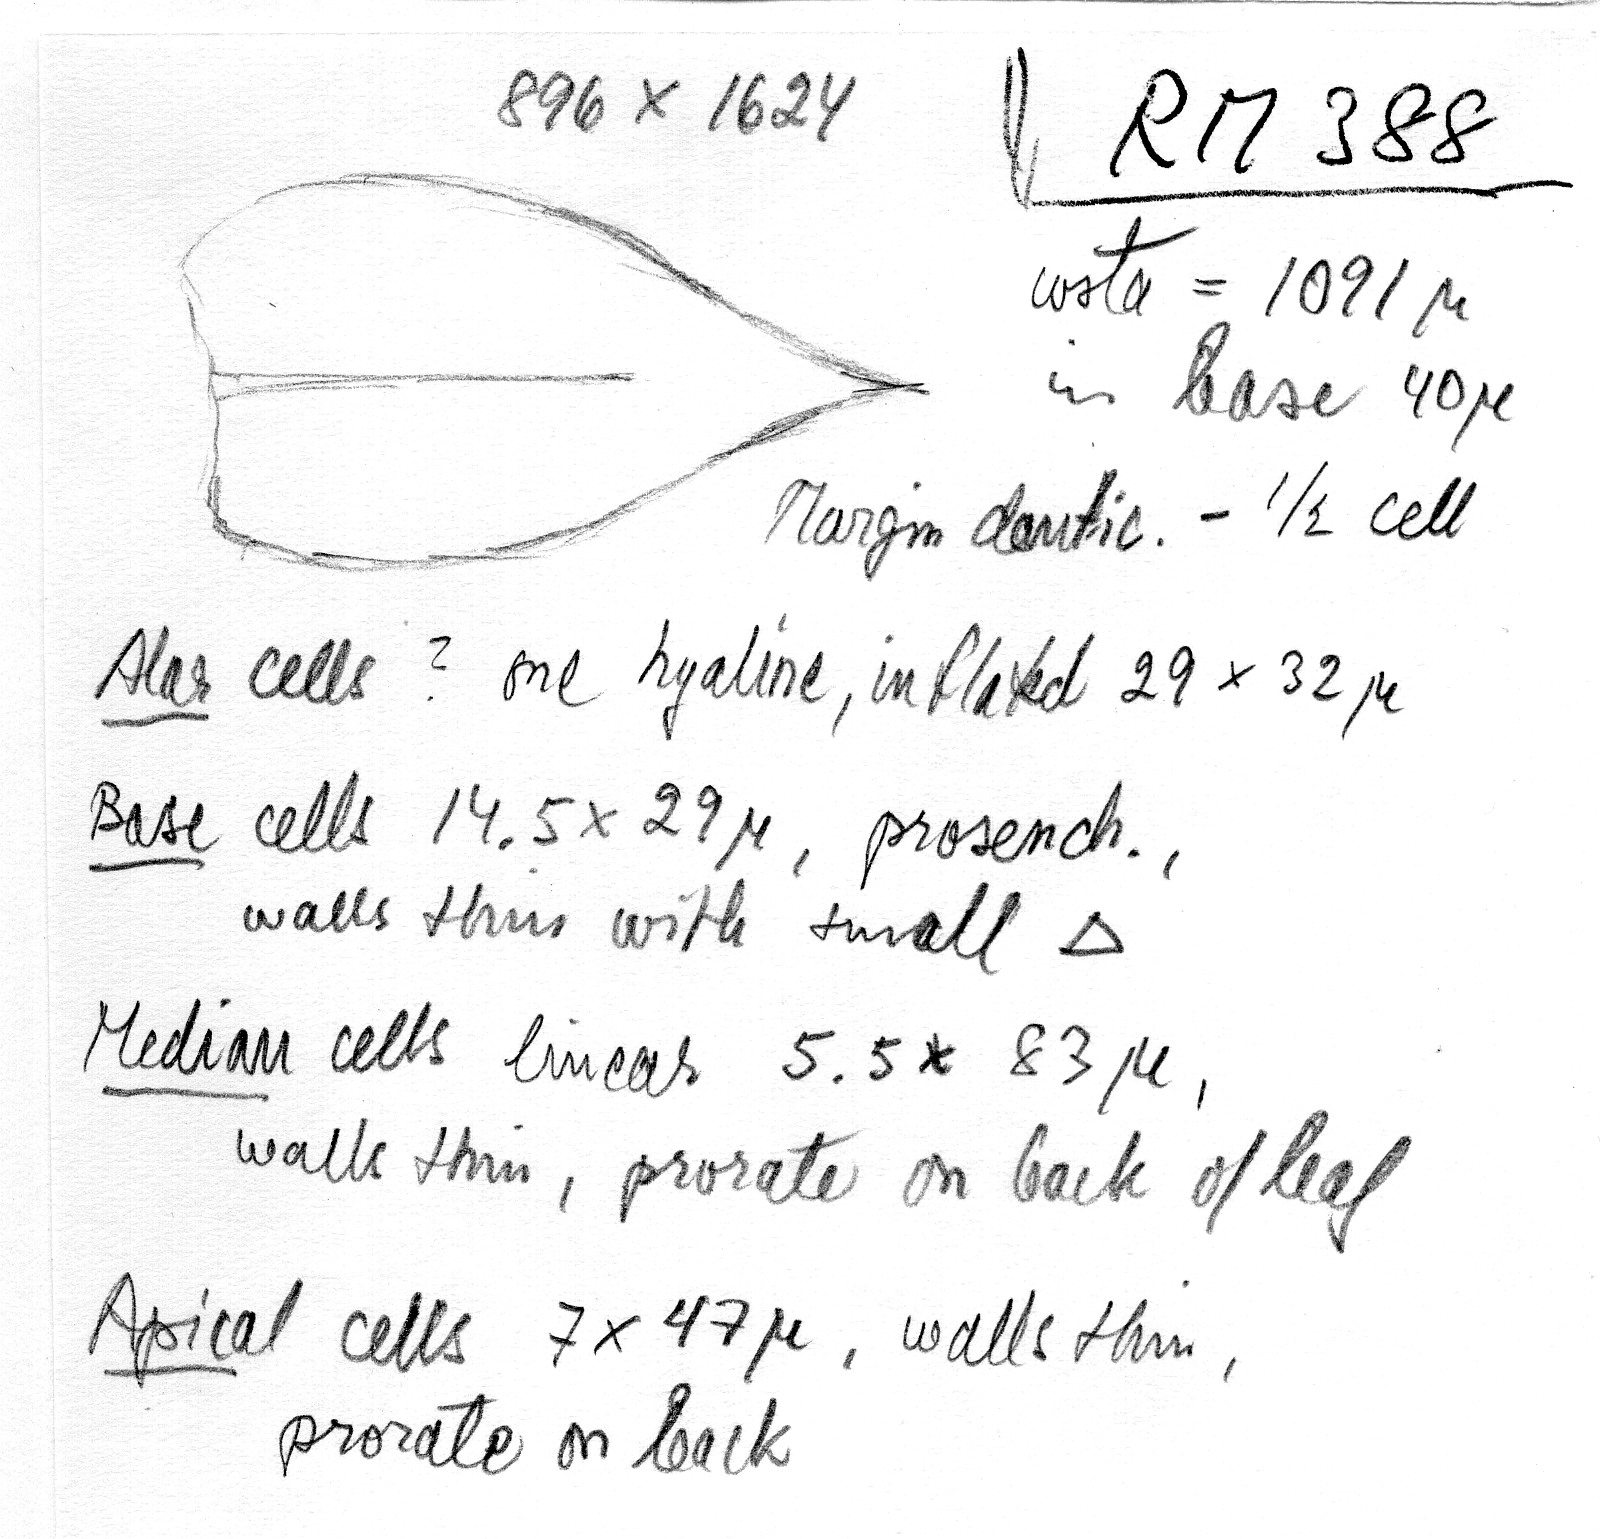 896 x 1624
RM 388
costa = 1091 μ
in base 40μ
Margin dentic. - 1/2 cell
Alar cells ? one hyaline, inflated 29 x 32 μ
Base cells 14.5 x 29 μ, prosench.,
walls thin with small Δ
Median cells linear 5.5 x 83 μ,
walls thin, prorate on back of leaf
Apical cells 7 x 47 μ, walls thin,
prorate on back